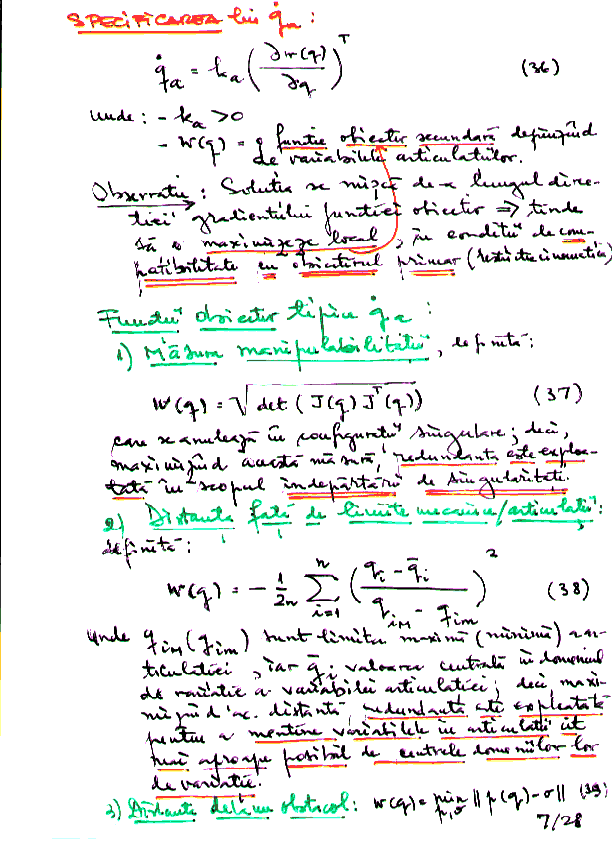 SPECIFICAREA lui q̇ₐ :
q̇ₐ = kₐ (∂w(q)/∂q)ᵀ (36)
unde : - kₐ > 0
- w(q) = o funcție obiectiv secundară depinzând
de variabilele articulațiilor.
Observație : Soluția se mișcă de-a lungul direc-
ției gradientului funcției obiectiv ⇒ tinde
să o maximizeze local, în condiții de com-
patibilitate cu obiectivul primar (restricție cinematică)
Funcții obiectiv tipice q̇ₐ :
1) Măsura manipulabilității, definită:
w(q) = √det (J(q) Jᵀ(q)) (37)
care se anulează în configurații singulare ; deci,
maximizând această măsură, redundanța este exploa-
tată în scopul îndepărtării de singularitate.
2) Distanța față de limite mecanice/articulații :
definită :
w(q) = - 1/2n ∑ᵢ₌₁ⁿ ((qᵢ - q̄ᵢ)/(qᵢM - qᵢm))² (38)
unde qᵢM (qᵢm) sunt limita maximă (minimă) a ar-
ticulației, iar q̄ᵢ valoarea centrală în domeniul
de variație a variabilei articulației ; deci, maxi-
mizând ac. distanță, redundanța este exploatată
pentru a menține variabilele în articulații cât
mai aproape posibil de centrele domeniilor lor
de variație.
3) Distanța de la un obstacol : w(q) = min p,o ‖p(q) - o‖ (39)
7/28